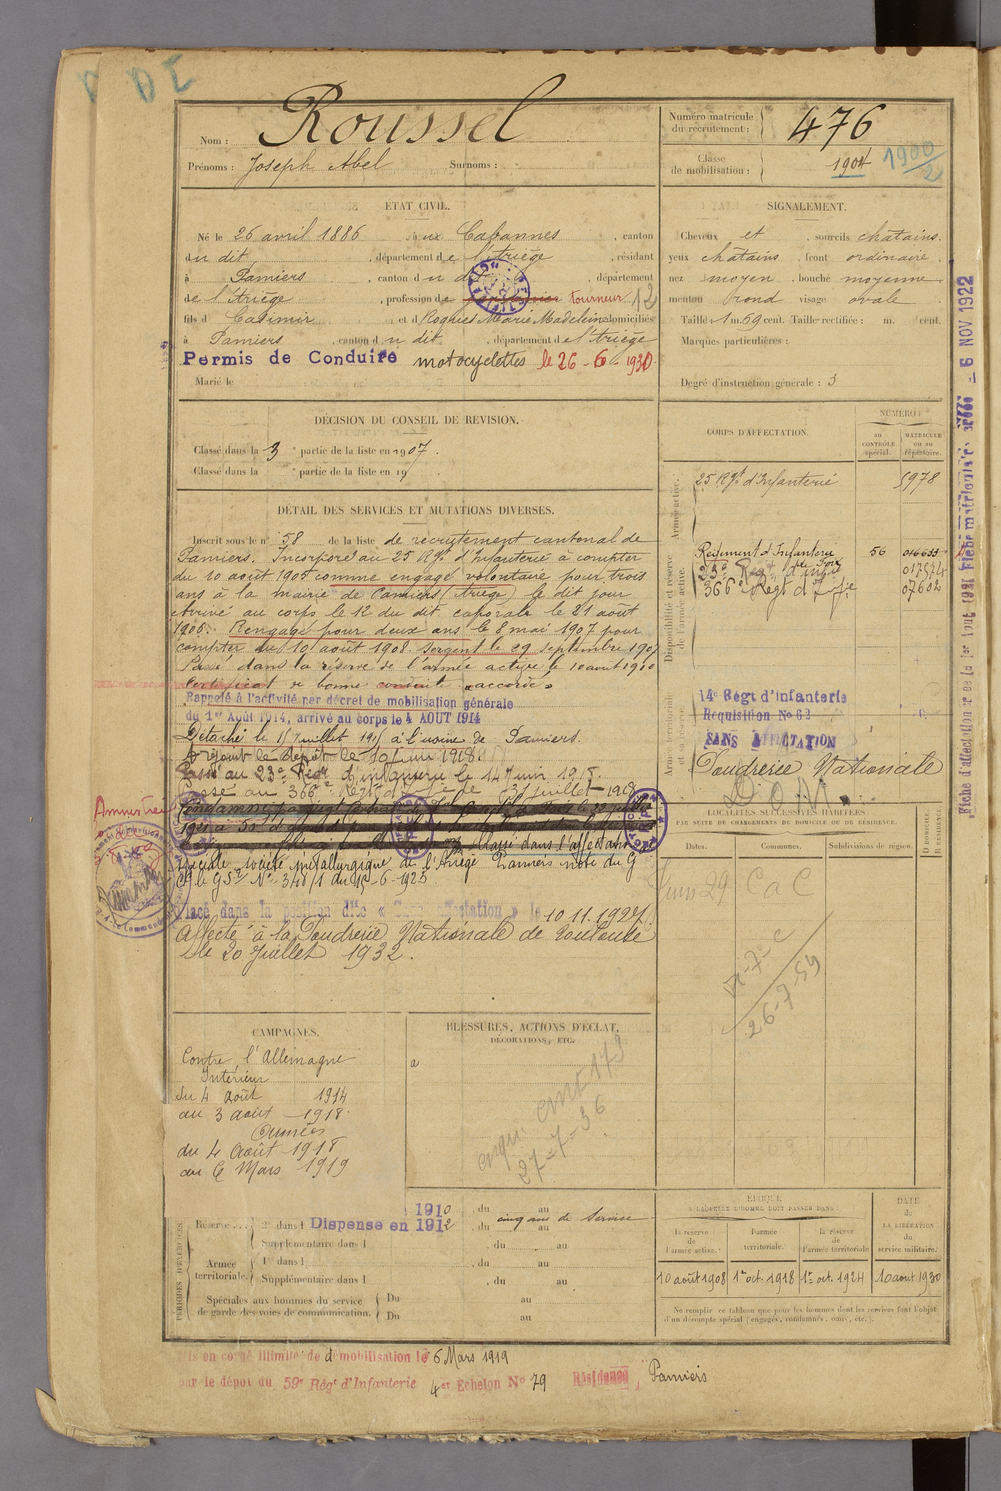 Nom : Roussel
Prénoms : Joseph Abel Surnoms :
Numéro matricule du recrutement : 476
Classe de mobilisation : 1904 1900/2
ÉTAT CIVIL.
Né le 26 avril 1886, à ux Cabannes, canton
du dit, département de l'Ariège, résidant
à Pamiers, canton du dit, département
de l'Ariège, profession de tourneur 12
fils de Casimir et d Marie Madeleine domiciliés
à Pamiers, canton du dit, département de l'Ariège
Permis de Conduire motocyclettes le 26-6-1930
Marié le
SIGNALEMENT.
Cheveux et sourcils châtains.
yeux châtains, front ordinaire
nez moyen bouche moyenne
menton rond visage ovale
Taille : 1 m. 69 cent. Taille rectifiée : m. cent.
Marques particulières :
Degré d'instruction générale : 3
DÉCISION DU CONSEIL DE REVISION.
Classé dans la 3e partie de la liste en 1907.
Classé dans la e partie de la liste en 19
DÉTAIL DES SERVICES ET MUTATIONS DIVERSES.
Inscrit sous le n° 58 de la liste de recrutement cantonal de
Pamiers. Incorporé au 25 Rgt d'Infanterie à compter
du 10 août 1905 comme engagé volontaire pour trois
ans à la mairie de Pamiers (Ariège) le dit jour
Arrivé au corps le 12 du dit caporal le 21 août
1906. Rengagé pour deux ans le 8 mai 1907 pour
compter du 10 août 1908. Sergent le 29 septembre 1907
Passé dans la réserve de l'armée active le 10 août 1910
Certificat de bonne conduite accordé
Rappelé à l'activité par décret de mobilisation générale
du 1er Août 1914, arrivé au corps le 4 AOUT 1914
Détaché le 1 Juillet 1915 à l'usine de Pamiers.
A rejoint le dépôt le 10 juin 1918.
Passé au 23e Régt d'infanterie le 14 juin 1918.
Passé au 366e Régt d' le 31 juillet 1918
Classé dans l'affectation
spéciale société métallurgique de l'Ariège Pamiers note du G
Placé dans la position dite « Sans affectation » le 10.11.1927
Affecté à la Poudrerie Nationale de Toulouse
le 20 Juillet 1932.
CORPS D'AFFECTATION.
NUMÉRO :
au CONTRÔLE spécial.
MATRICULE ou au répertoire.
Armée active.
25 Rgt d'Infanterie 5978
Disponibilité et réserve de l'armée active.
Régiment d'Infanterie 56 046633
23e Régt d'infie 017574
366e Régt d'Infie 07602
Armée territoriale et sa réserve.
14e Régt d'infanterie
Requisition No 62
SANS AFFECTATION
Poudrerie Nationale
LOCALITÉS SUCCESSIVES HABITÉES
PAR SUITE DE CHANGEMENTS DE DOMICILE OU DE RÉSIDENCE.
Dates. Communes. Subdivisions de région. D DOMICILE. R RÉSIDENCE.
Juin 29 C a C
26-7-39
CAMPAGNES.
Contre l'Allemagne
Intérieur
du 4 août 1914
au 3 août 1918
Armées
du 4 Août 1918
au 6 Mars 1919
BLESSURES, ACTIONS D'ÉCLAT,
DÉCORATIONS, ETC.
27-7-36
PÉRIODES D'EXERCICES.
1910 du au
Réserve 2e dans l Dispense en 1912 du cinq ans de service au
Supplémentaire dans l du au
Armée territoriale. 1re dans l du au
Supplémentaire dans l du au
Spéciales aux hommes du service de garde des voies de communication. Du au
Du au
ÉPOQUE À LAQUELLE L'HOMME DOIT PASSER DANS :
la réserve de l'armée active. l'armée territoriale. la réserve de l'armée territoriale
DATE de LA LIBÉRATION du service militaire.
10 août 1908 1er oct. 1918 1er oct. 1924 10 août 1930
Ne remplir ce tableau que pour les hommes dont les services font l'objet
d'un décompte spécial (engagés, condamnés, omis, etc.).
Mis en congé illimité de démobilisation le 6 Mars 1919
par le dépôt du 59e Régt d'Infanterie 4er Echelon No 79 Résidence, Pamiers